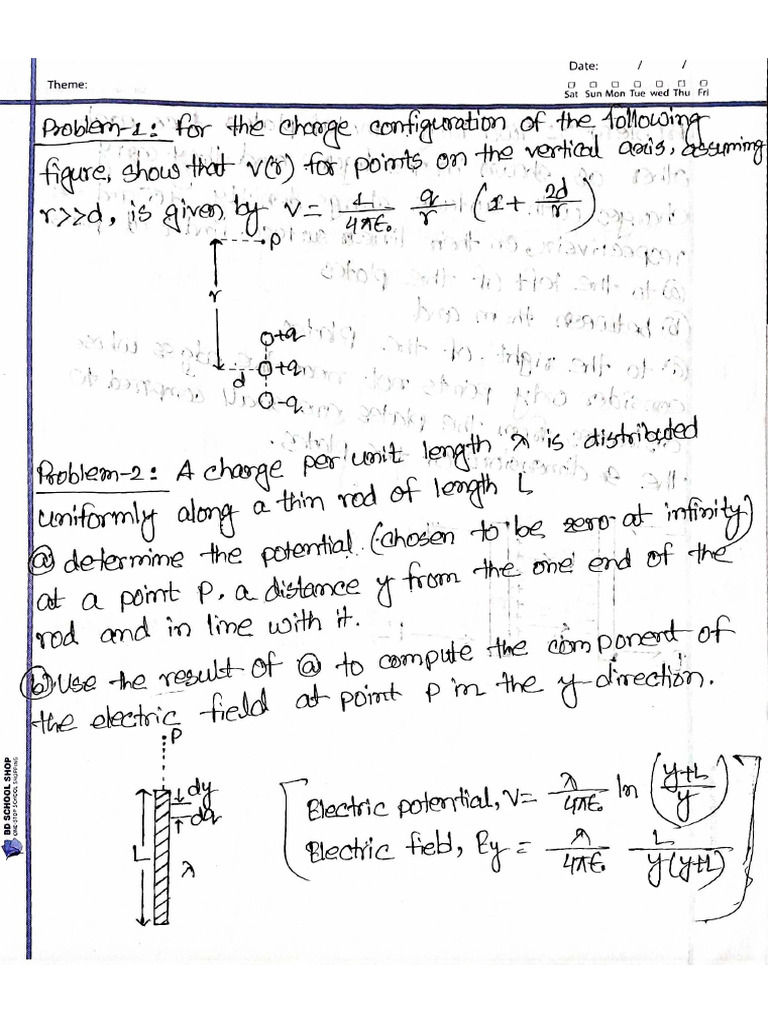 Date: / /
Theme:
Sat Sun Mon Tue wed Thu Fri
Problem-1: For the charge configuration of the following
figure, show that V(r) for points on the vertical axis, assuming
r>>d, is given by V = 1/4πε₀ q/r (1 + 2d/r)
P
r
+q
+q
d
-q
Problem-2: A charge per unit length λ is distributed
uniformly along a thin rod of length L
(a) determine the potential (chosen to be zero at infinity)
at a point P, a distance y from the one end of the
rod and in line with it.
(b) Use the result of (a) to compute the component of
the electric field at point P in the y-direction.
P
dy
dq
L
λ
Electric potential, V = λ/4πε₀ ln (y+L/y)
Electric field, Ey = λ/4πε₀ L/y(y+L)
BD SCHOOL SHOP
ONE STOP SCHOOL SHOPPING